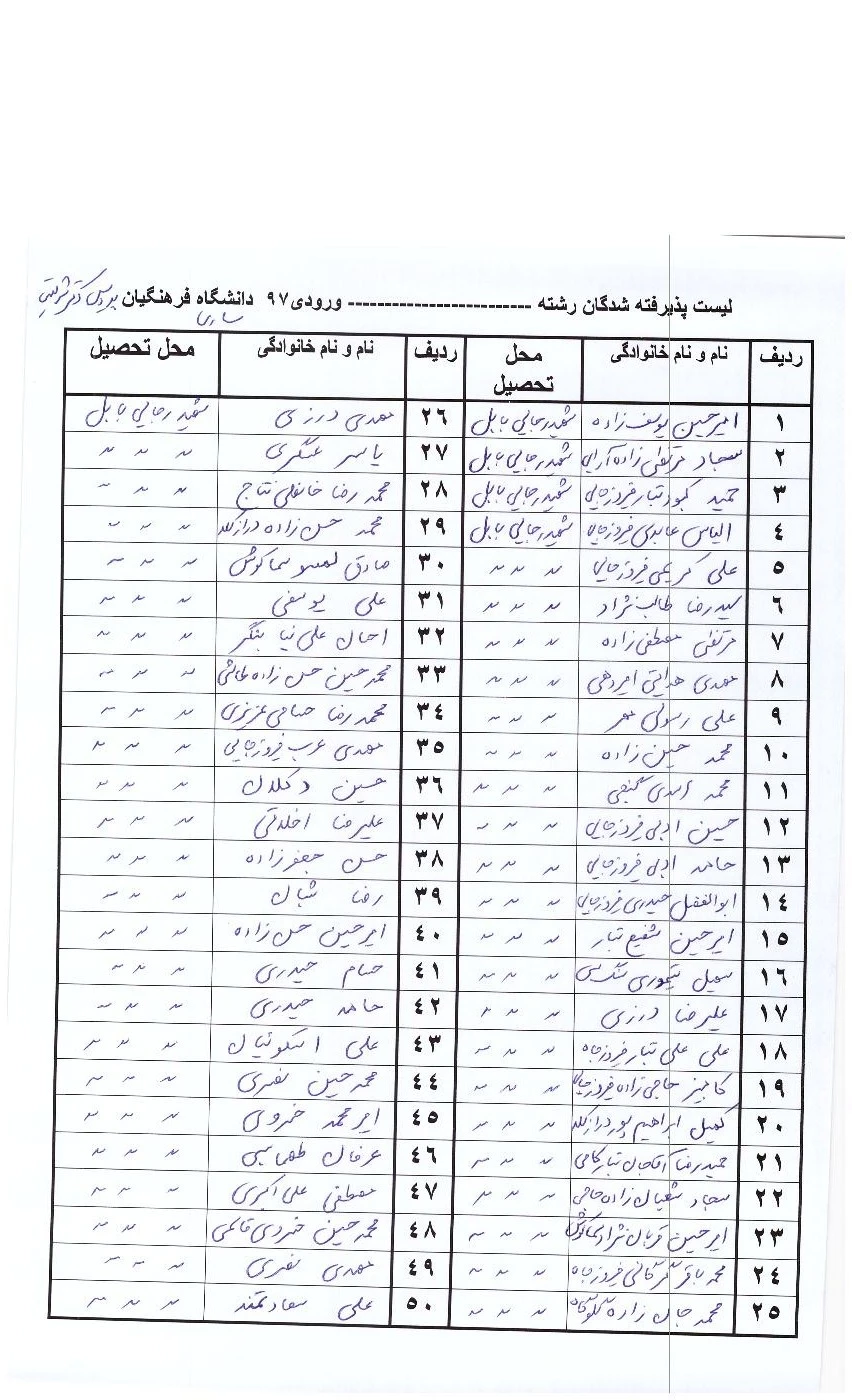 لیست پذیرفته شدگان رشته ------------------------- ورودی ۹۷ دانشگاه فرهنگیان پردیس دکتر شریعتی
ساری
ردیف نام و نام خانوادگی محل تحصیل ردیف نام و نام خانوادگی محل تحصیل
۱ امیرحسین یوسف زاده شهید رجایی بابل ۲۶ مهدی درزی شهید رجایی بابل
۲ سجاد مرتضی زاده آرایی شهید رجایی بابل ۲۷ یاسر عسگری " " "
۳ حمید کبود تبار فیروزجایی شهید رجایی بابل ۲۸ محمدرضا خانعلی نتاج " " "
۴ الیاس عابدی فیروزجایی شهید رجایی بابل ۲۹ محمد حسن زاده درازکلا " " "
۵ علی کریمی فیروزجایی " " " ۳۰ صادق سماکوش " " "
۶ سیدرضا طالب نژاد " " " ۳۱ علی یوسفی " " "
۷ مرتضی مصطفی زاده " " " ۳۲ علی نیا " " "
۸ مهدی هدایتی امردهی " " " ۳۳ محمدحسین حسن زاده " " "
۹ علی رسولی " " " ۳۴ محمدرضا عزیزی " " "
۱۰ محمد حسین زاده " " " ۳۵ مهدی عرب فیروزجایی " " "
۱۱ محمد اسدی " " " ۳۶ حسین " " "
۱۲ حسین فیروزجایی " " " ۳۷ علیرضا " " "
۱۳ حامد فیروزجایی " " " ۳۸ حسن جعفرزاده " " "
۱۴ ابوالفضل حیدری فیروزجایی " " " ۳۹ رضا " " "
۱۵ امیرحسین شفیع تبار " " " ۴۰ امیرحسین حسن زاده " " "
۱۶ سهیل تیموری " " " ۴۱ حسام حیدری " " "
۱۷ علیرضا درزی " " " ۴۲ حامد حیدری " " "
۱۸ علی علی تبار فیروزجاه " " " ۴۳ علی " " "
۱۹ کامبیز حاجی زاده فیروزجایی " " " ۴۴ محمدحسین نصری " " "
۲۰ کمیل ابراهیم پور درازکلا " " " ۴۵ امیرمحمد خسروی " " "
۲۱ حمیدرضا آقاجان تبار " " " ۴۶ عرفان طهماسبی " " "
۲۲ سجاد شعبان زاده " " " ۴۷ مصطفی علی اکبری " " "
۲۳ امیرحسین قربان نژاد " " " ۴۸ محمدحسین " " "
۲۴ محمدباقر فیروزجاه " " " ۴۹ مهدی نصری " " "
۲۵ محمد جان زاده گلوگاه " " " ۵۰ علی سعادتمند " " "